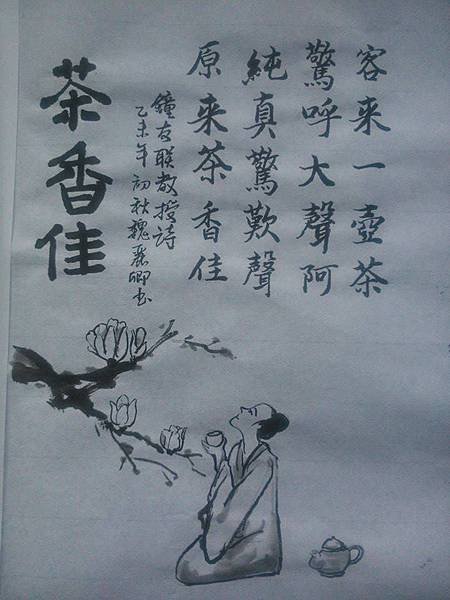 客来一壺茶
驚呼大聲阿
純真驚歎聲
原来茶香佳
鐘友联教授詩
乙未年初秋魏麗卿书
茶香佳